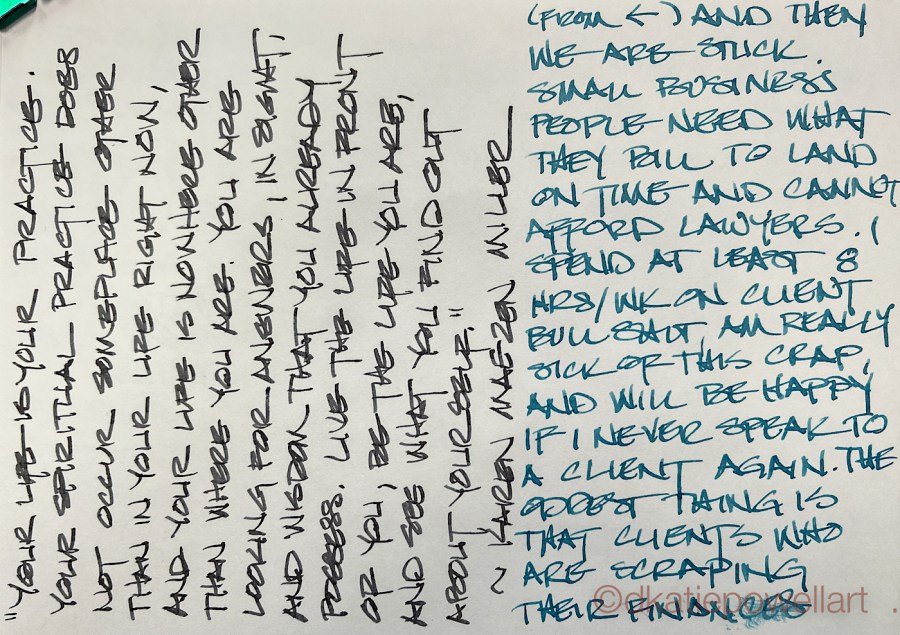 "YOUR LIFE IS YOUR PRACTICE.
YOUR SPIRITUAL PRACTICE DOES
NOT OCCUR SOMEPLACE OTHER
THAN IN YOUR LIFE RIGHT NOW,
AND YOUR LIFE IS NOWHERE OTHER
THAN WHERE YOU ARE. YOU ARE
LOOKING FOR ANSWERS, INSIGHT,
AND WISDOM THAT YOU ALREADY
POSSESS. LIVE THE LIFE IN FRONT
OF YOU, BE THE LIFE YOU ARE,
AND SEE WHAT YOU FIND OUT
ABOUT YOURSELF."
~ KAREN MAEZEN MILLER
(FROM ←) AND THEN
WE ARE STUCK.
SMALL BUSINESS
PEOPLE NEED WHAT
THEY BILL TO LAND
ON TIME AND CANNOT
AFFORD LAWYERS. I
SPEND AT LEAST 8
HRS/WK ON CLIENT
BULLSHIT AM REALLY
SICK OF THIS CRAP,
AND WILL BE HAPPY
IF I NEVER SPEAK TO
A CLIENT AGAIN. THE
ODDEST THING IS
THAT CLIENTS WHO
ARE SCRAPING
THEIR FINANCES
©dkatiepowellart .